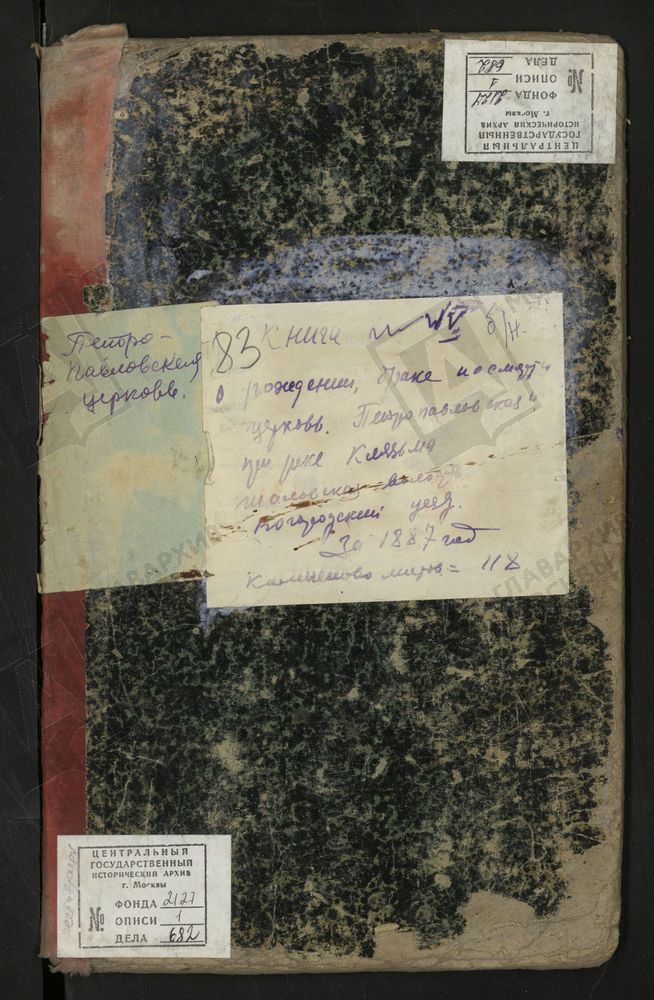 ЦЕНТРАЛЬНЫЙ
ГОСУДАРСТВЕННЫЙ
ИСТОРИЧЕСКИЙ АРХИВ
г. Москвы
№ ФОНДА 2127
ОПИСИ 1
ДЕЛА 682
Петро-
Павловская
церковь.
83 Книга б/н.
о рождении, браке и смерти
церковь. Петропавловская
при реке Клязьма
волость
Богородский уезд.
За 1887 год
листов = 118
ЦЕНТРАЛЬНЫЙ
ГОСУДАРСТВЕННЫЙ
ИСТОРИЧЕСКИЙ АРХИВ
г. Москвы
№ ФОНДА 2127
ОПИСИ 1
ДЕЛА - 682